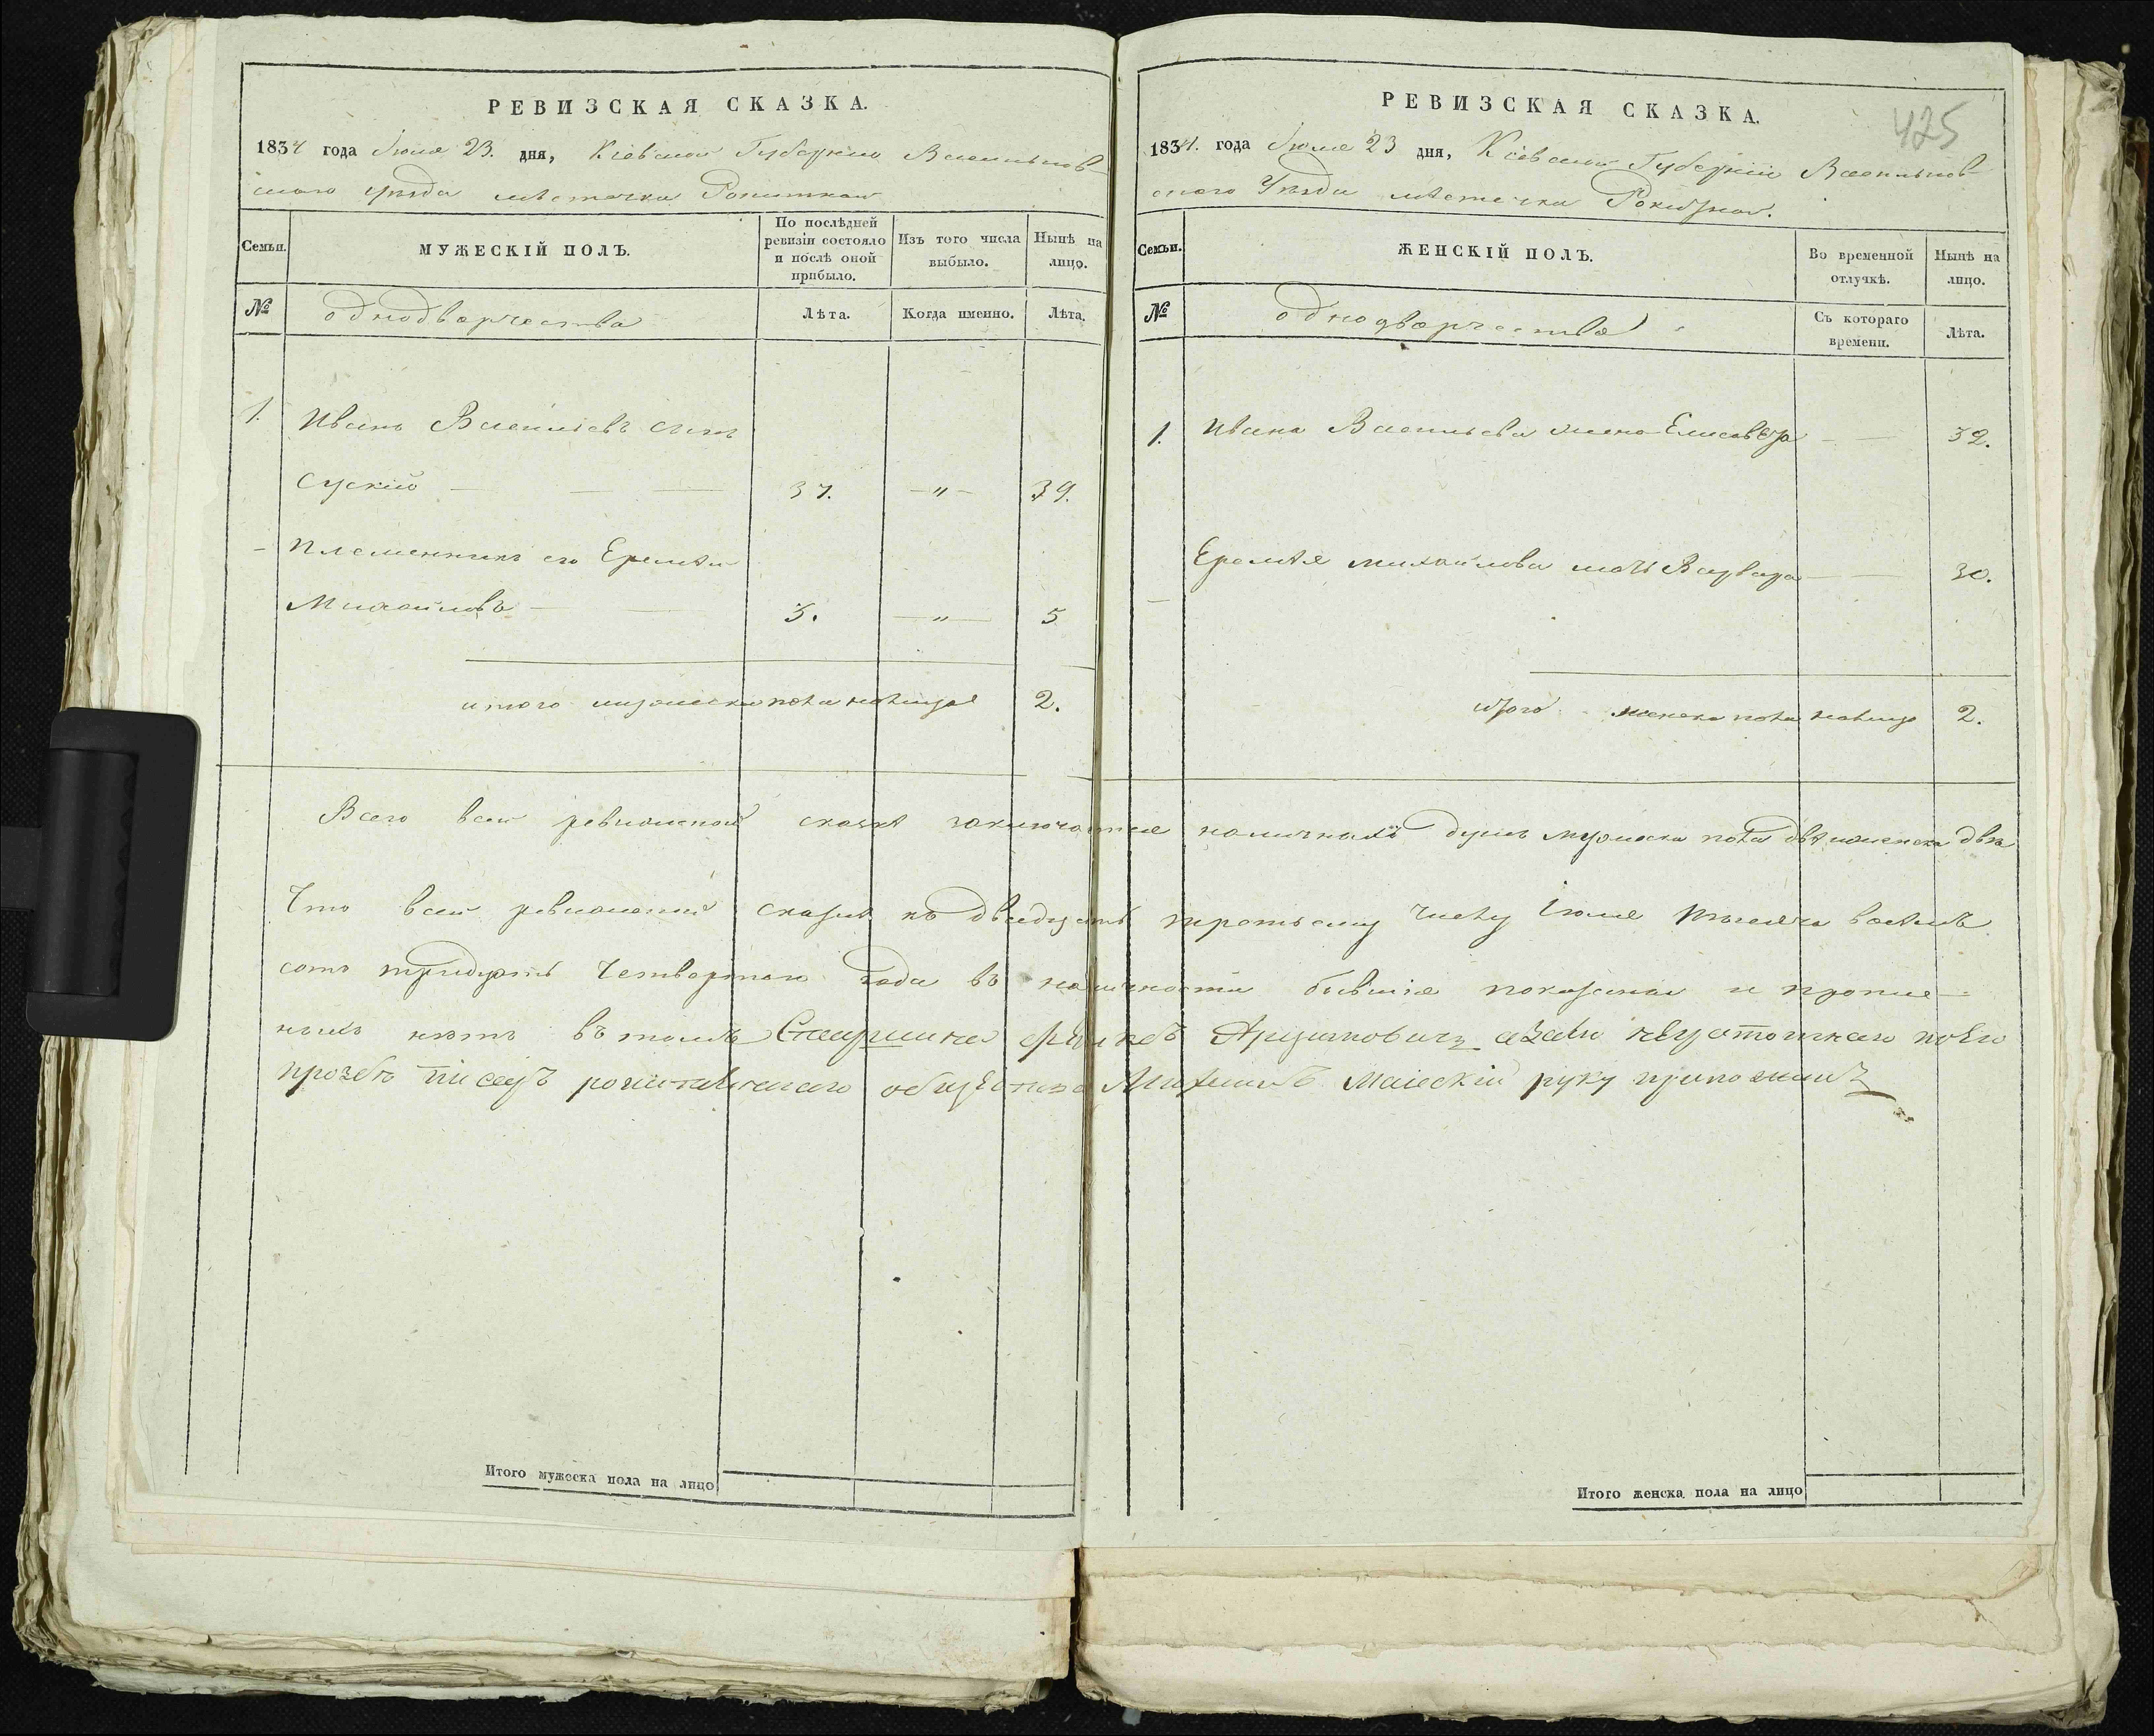 РЕВИЗСКАЯ СКАЗКА.
1834 года Июля 23. дня, Кіевской Губерніи Васильков-
скаго уѣзда мѣстечка Рокитной
Семьи.
МУЖЕСКІЙ ПОЛЪ.
По послѣдней ревизіи состояло и послѣ оной прибыло.
Изъ того числа выбыло.
Нынѣ на лицо.
№
однодворчества
Лѣта.
Когда именно.
Лѣта.
1. Иванъ Васильевъ сынъ
Сускій 37. 39.
Племенникъ его Еремѣй
Михайловъ 3. 5
итого мужеска пола налицо 2.
Итого мужеска пола на лицо
425
РЕВИЗСКАЯ СКАЗКА.
1834. года Июля 23 дня, Кіевской Губерніи Васильков-
скаго Уѣзда мѣстечка Рокитной.
Семьи.
ЖЕНСКІЙ ПОЛЪ.
Во временной отлучкѣ.
Нынѣ на лицо.
№
однодворчества
Съ котораго времени.
Лѣта.
1. Ивана Васильева жена Елисавета 32.
Еремѣя Михайлова мать Варвара 30.
итого женска пола налицо 2.
Всего всей ревизской сказкѣ заключается наличныхъ душъ мужеска пола двѣ и женска двѣ
Что всей ревизской сказки къ двадцать третьему числу Іюля мѣсяца восемь
сотъ тридцать четвертаго года въ наличности бывшіе показаны и пропис-
ныхъ нѣтъ въ томъ Старшина
прозбѣ писарь общества руку приложилъ
Итого женска пола на лицо